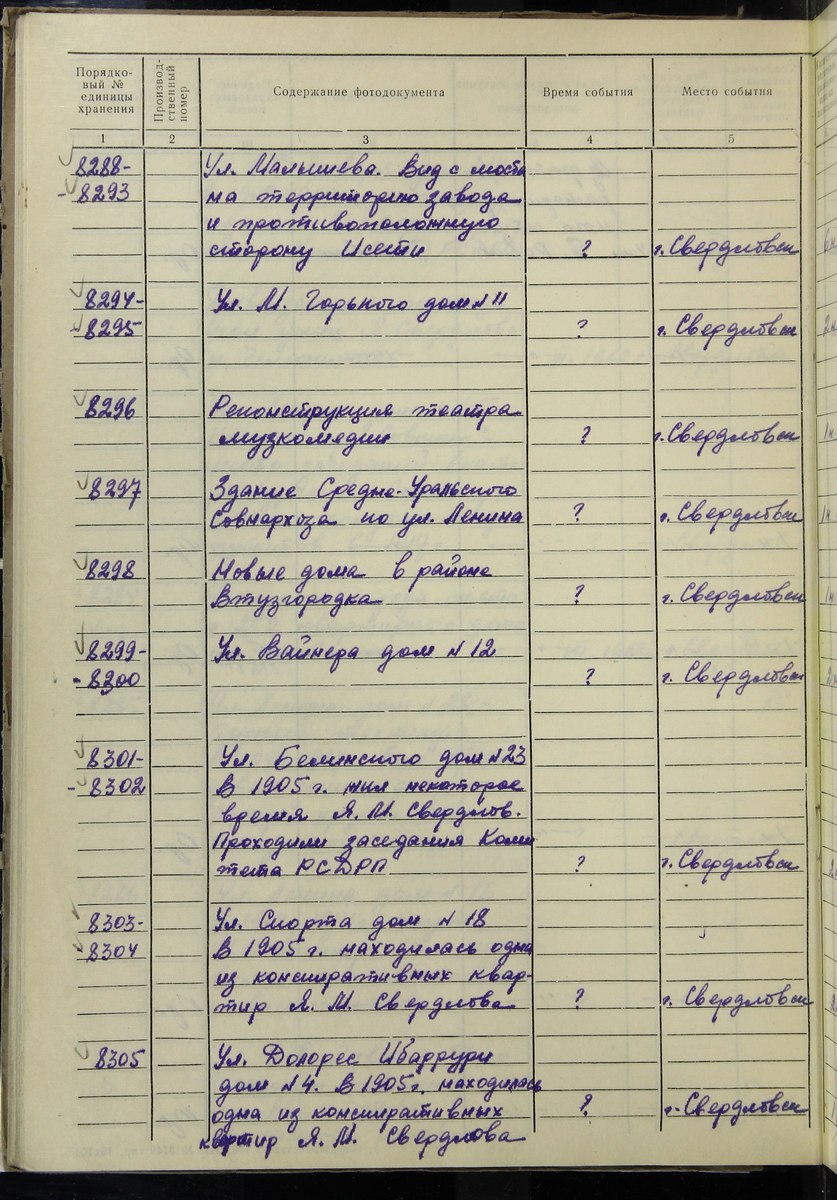 Порядко-
вый №
единицы
хранения
Производ-
ственный
номер
Содержание фотодокумента
Время события
Место события
1 2 3 4 5
8288- Ул. Малышева. Вид с моста
-8293 на территорию завода
и противоположную
сторону Исети ? г. Свердловск
8294- Ул. М. Горького дом № 11
-8295 ? г. Свердловск
8296 Реконструкция театра
музкомедии ? г. Свердловск
8297 Здание Средне-Уральского
Совнархоза по ул. Ленина ? г. Свердловск
8298 Новые дома в районе
Втузгородка ? г. Свердловск
8299- Ул. Вайнера дом № 12
-8300 ? г. Свердловск
8301- Ул. Белинского дом № 23
-8302 В 1905 г. жил некоторое
время Я. М. Свердлов.
Проходили заседания Коми
тета РСДРП ? г. Свердловск
8303- Ул. Спорта дом № 18
-8304 В 1905 г. находилась одна
из конспиративных квар-
тир Я. М. Свердлова ? г. Свердловск
8305 Ул. Долорес Ибаррури
дом № 4. В 1905 г. находилась
одна из конспиративных ? г. Свердловск
квартир Я. М. Свердлова